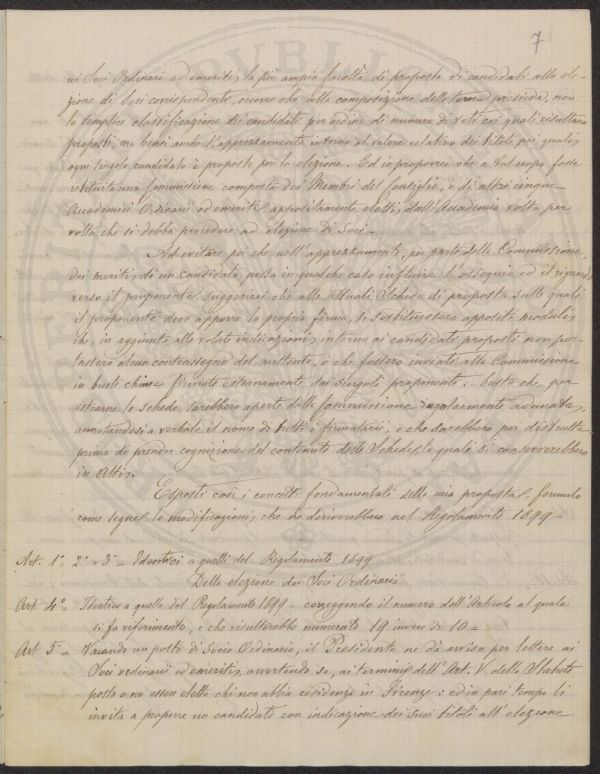 7
ai Soci Ordinari ed emeriti, la più ampia facoltà di proposta di candidati alla ele-
zione di Soci corrispondente, occorre che alla composizione delle terne presieda, non
la semplice classificazione dei candidati per ordine di numero di voti coi quali risultano
proposti, ma bensì anche l'apprezzamento intorno al valore relativo dei titoli, pei quali,
ogni singolo candidato è proposto per la elezione. Ed io proporrei che a tal uopo fosse
istituita una Commissione composta dei Membri del Consiglio, e di altri cinque
Accademici Ordinarii ed emeriti, appositamente eletti, dall'Accademia volta per
volta che si debba procedere ad elezione di Soci.
Ad evitare poi che nell'apprezzamento, per parte della Commissione,
dei meriti, di un candidato, possa in qualche caso influire l'ossequio ed il riguardo
verso il proponente, suggerirei che alle attuali Schede di proposta sulle quali
il proponente deve apporre la propria firma, si sostituissero appositi moduli,
che, in aggiunta alle volute indicazioni, intorno ai candidati proposti non por-
tassero alcun contrassegno del mittente, e che fossero inviati alla Commissione
in buste chiuse firmate esternamente dai singoli proponenti: buste che, per
estrarne le schede, sarebbero aperte dalla Commissione regolarmente adunata,
annotandosi a verbale il nome di tutti i firmatari, e che sarebbero poi distrutte
prima di prender cognizione del contenuto delle Schede, le quali si conserverebbero
in Atti.
Esposti così i concetti fondamentali della mia proposta, formulo
come segue, le modificazioni, che ne deriverebbero nel Regolamento 1899 -
Art. 1° 2° e 3° = Identici a quelli del Regolamento 1899
Della elezione dei Soci Ordinari
Art 4° = Identico a quello del Regolamento 1899 - correggendo il numero dell'Articolo al quale
si fa riferimento, e che risulterebbe numerato 19 invece di 10 =
Art. 5° = Vacando un posto di Socio Ordinario, il Presidente ne dà avviso per lettera ai
Soci ordinarii ed emeriti, avvertendo se, ai termini, dell'Art. V. dello Statuto
possa o no essere eletto chi non abbia residenza in Firenze: ed in pari tempo li
invita a proporre un candidato con indicazione dei suoi titoli all'elezione